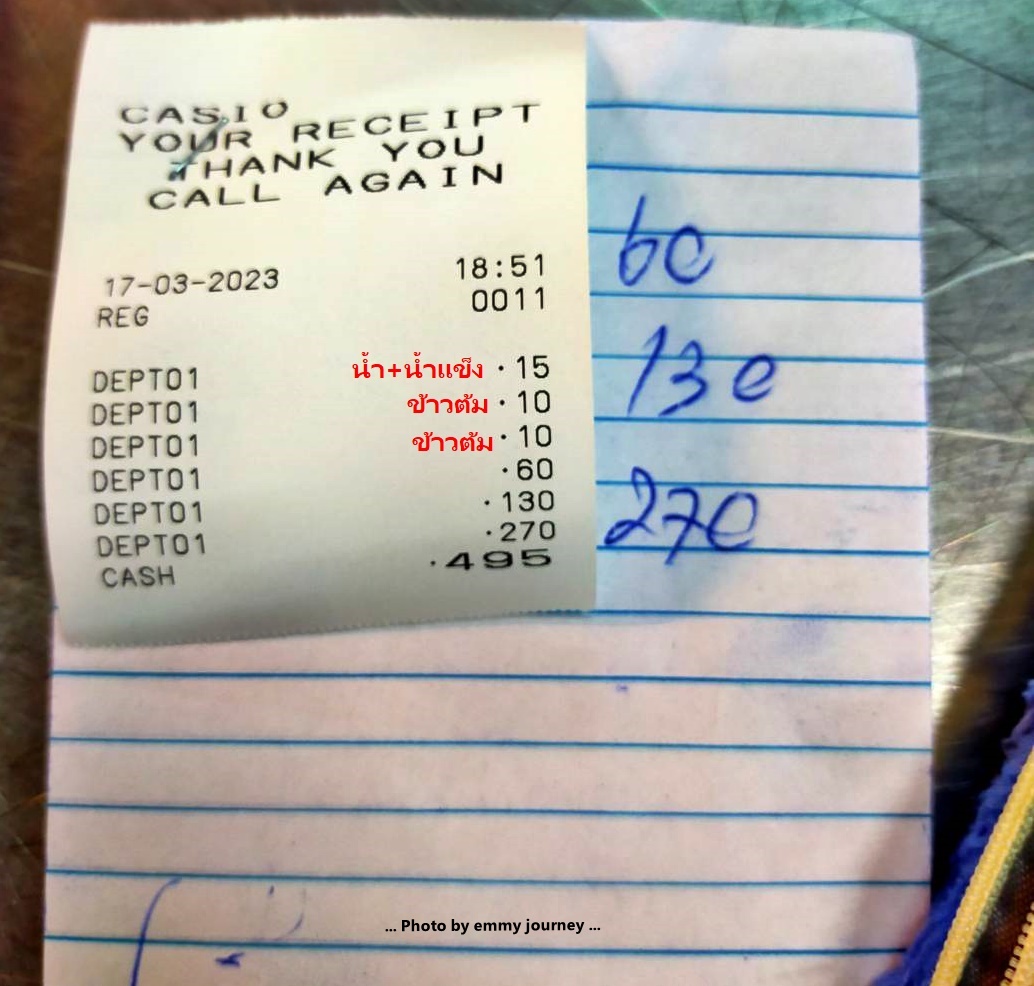 CASIO
YOUR RECEIPT
THANK YOU
CALL AGAIN
17-03-2023 18:51
REG 0011
DEPT01 น้ำ+น้ำแข็ง ·15
DEPT01 ข้าวต้ม ·10
DEPT01 ข้าวต้ม ·10
DEPT01 ·60
DEPT01 ·130
DEPT01 ·270
CASH ·495
60
130
270
... Photo by emmy journey ...